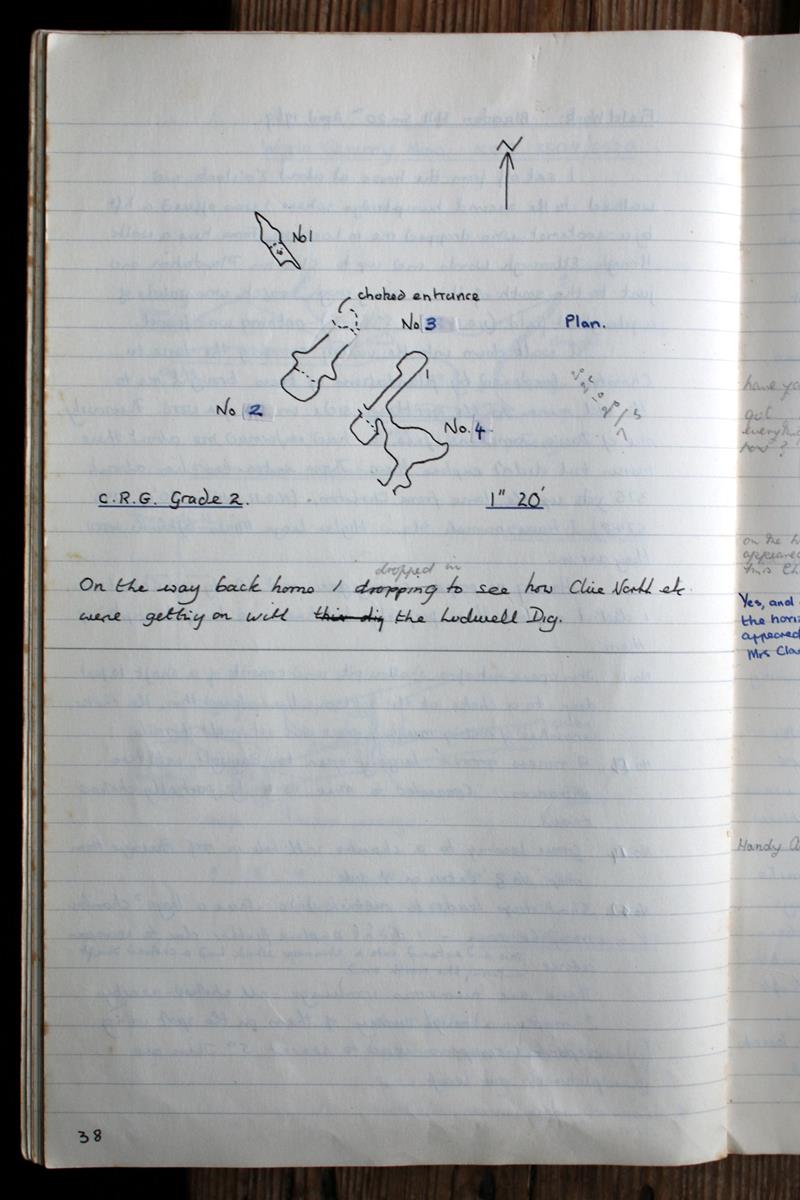 N
No 1
choked entrance
No 3
Plan.
No 2
No. 4
C.R.G. Grade 2.
1" 20'
dropped in
On the way back home I dropping to see how Clive North etc
were getting on with this dig the Ludwell Dig.
38
have you
got
everything
on the h
appeared
this Ch
Yes, and
the horiz
appeared
Mrs Cla
Handy A